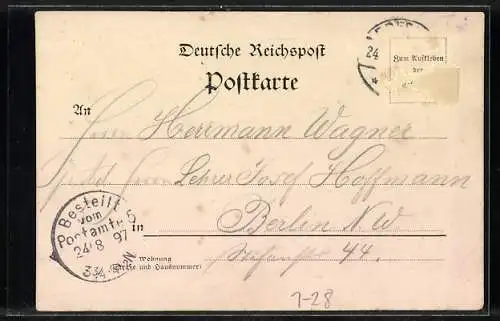 Deutsche Reichspost
Postkarte
24
Zum Aufkleben
der
An
Herrn Herrmann Wagner
Lehrer Josef Hoffmann
in Berlin N.W.
Wohnung
(Straße und Hausnummer)
44.
Bestellt
vom
Postamte 5
24/8 97
3¾-
N
7-28